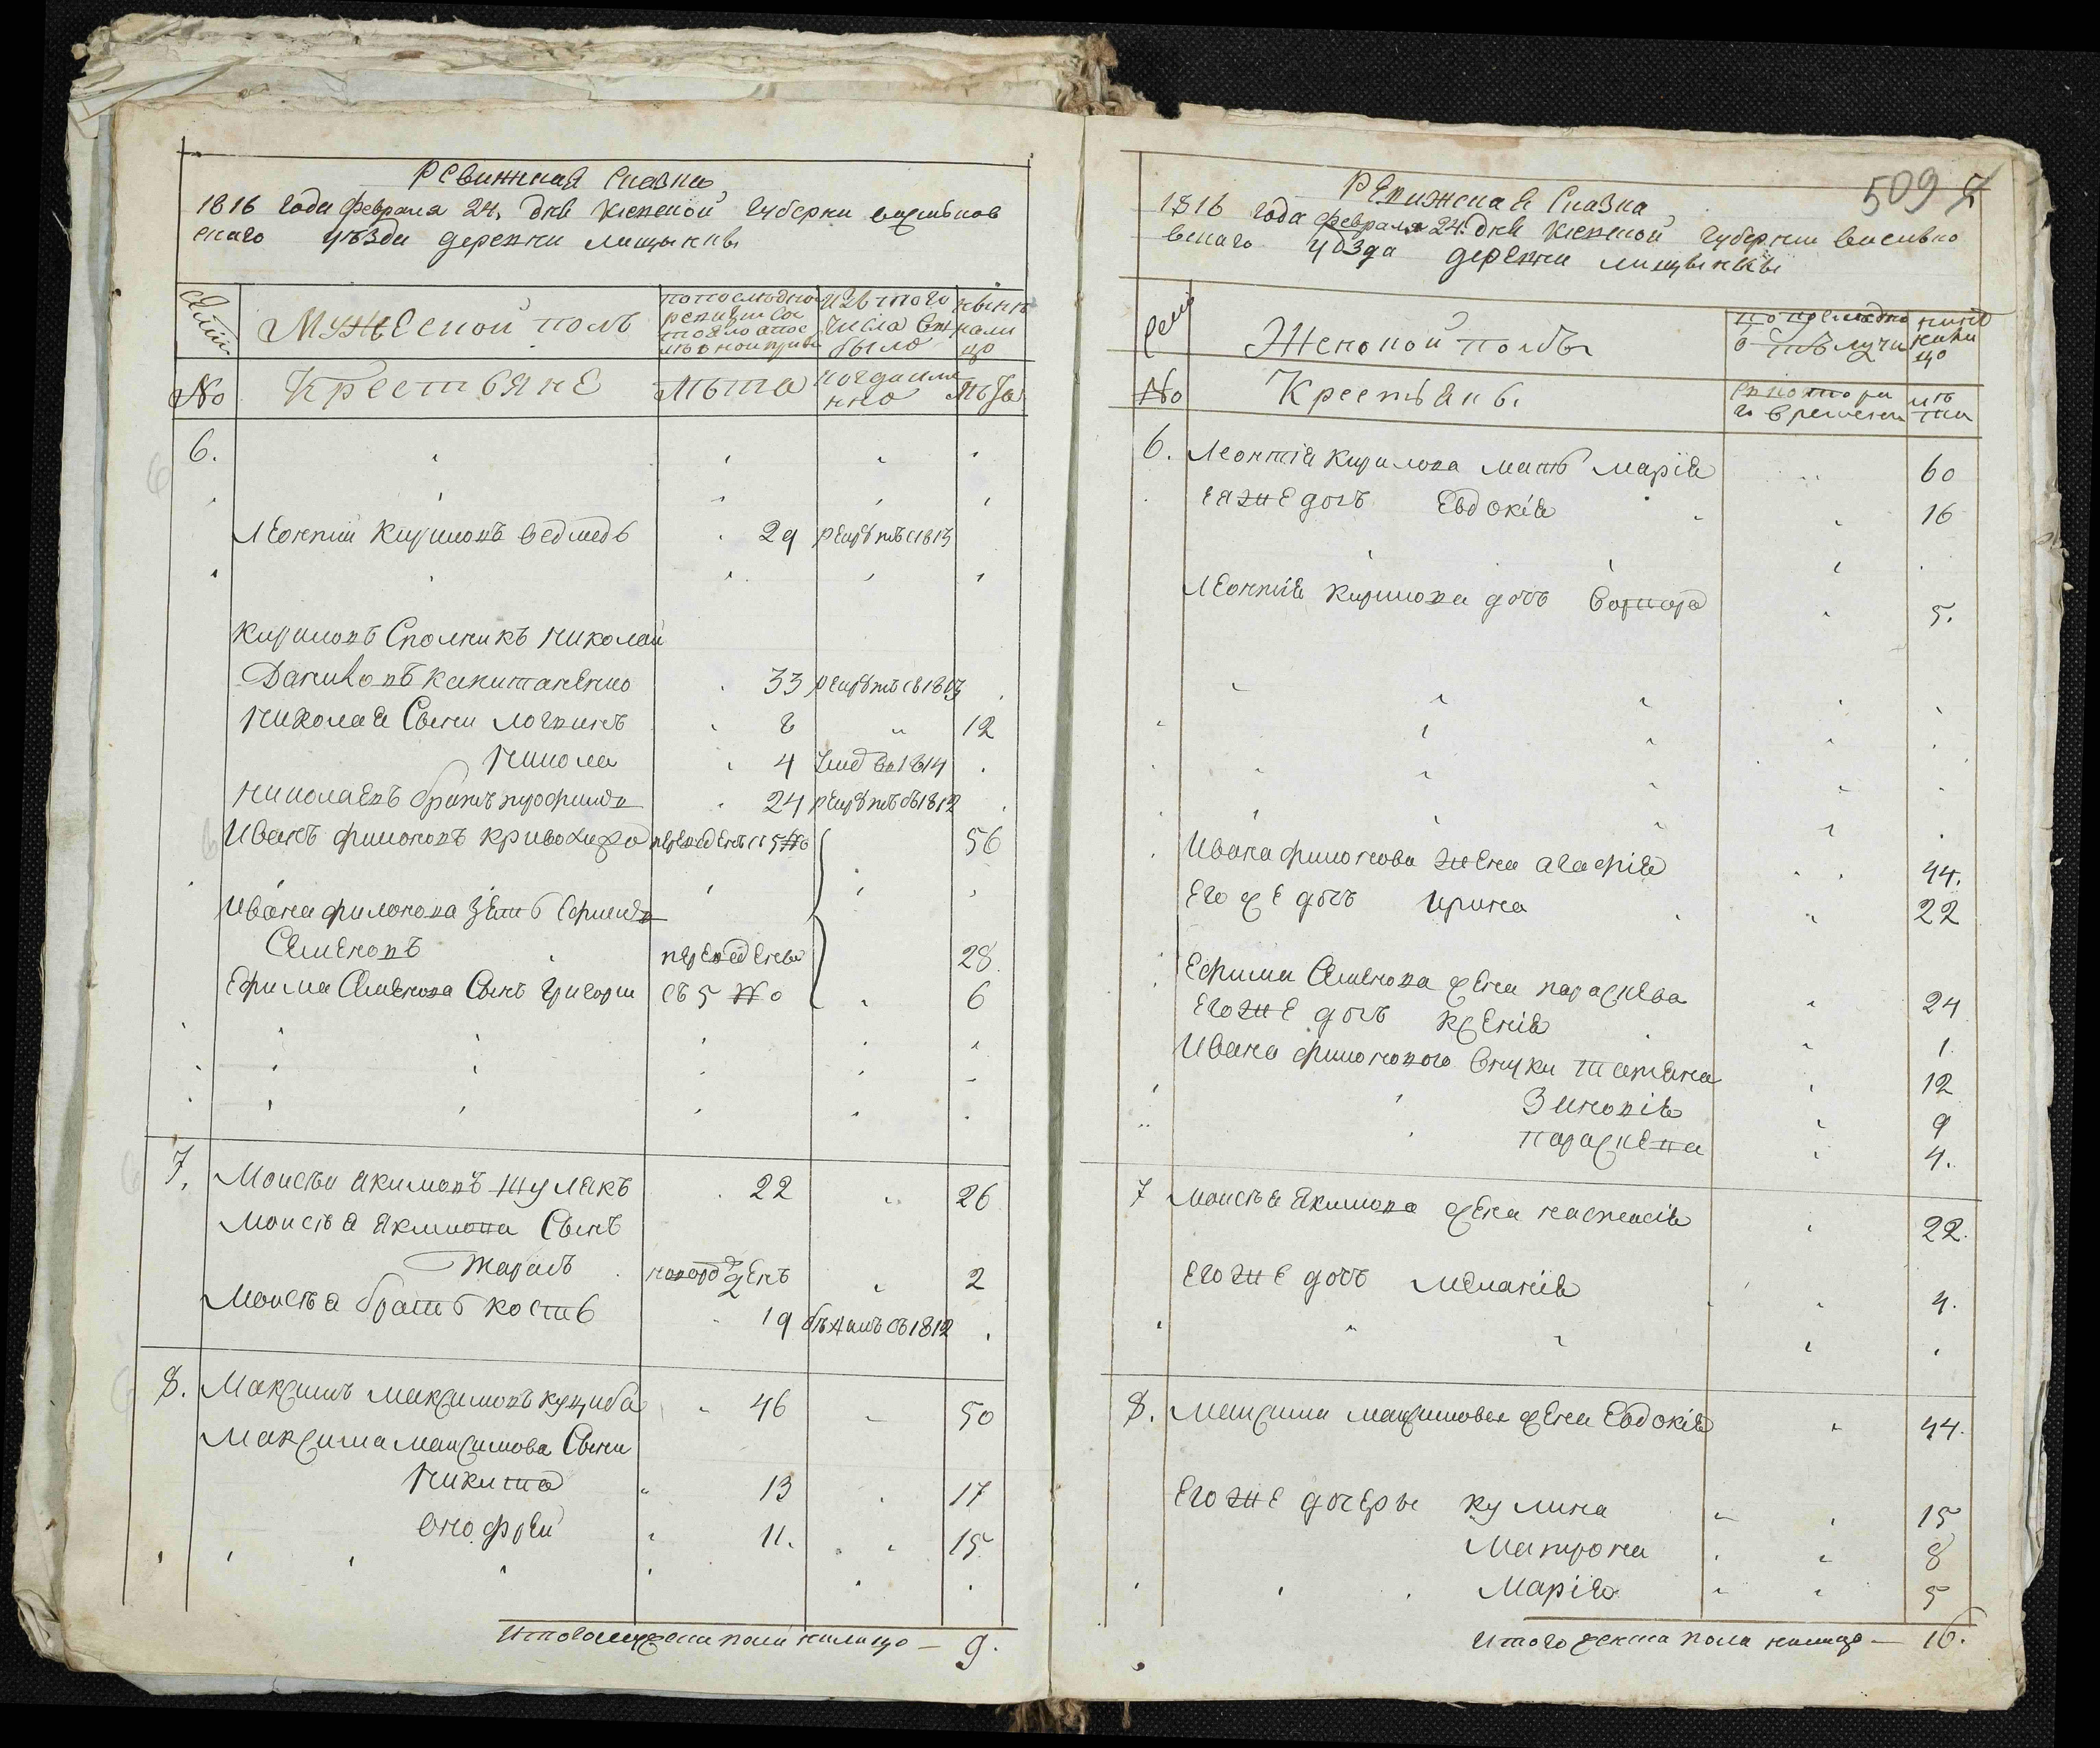 Ревижская Сказка
1816 года февраля 24. дня Киевской губернии васильков
скаго уѣзда деревни лищинки
Семии
Мужескои полъ
попоследнеи ревизии состояло апослѣ оной прибы
Изъ того числа выбыло
нынѣ налицо
№
Крестьяне
лѣта
когда именно
лѣта
6.
Леонтии Кириловъ ведмедь 29 рекрутъ с1813
Кириловъ Сполникъ николай
Даниловъ капитаненко 33 рекрутъ съ1813
николая Сыни логвинъ 8 12
никола 4 умеръ въ1814
николаевъ братъ трофимъ 24 рекрутъ съ1812
Иванъ филоновъ криво переведенъ съ5№ 56
Ивана филонова зять Ефимъ
Семеновъ переведены 28.
Ефима Семенова Сынъ григори съ 5 №о 6
7. Моисѣи Якимовъ шулякъ 22 26
Моисѣя Якимова Сынъ
Тарасъ новорожденъ 2
Моисѣя братъ кость 19 бѣжалъ съ1812
8. Максимъ максимовъ куциба 46 50
Максима максимова Сыни
Никита 13 17
Онофрей 11. 15
Итого мужеска пола налицо — 9.
509
Ревижская Сказка
1816 года февраля 24. дня Киевской губернии василько
вскаго уѣзда деревни лищинки
Семии
Женской полъ
попоследно
отлучи
нинѣ налицо
№
Крестьяны
скотора
го времени
лѣта
6. Леонтія Кирилова мать марія 60
ея же дочъ Евдокія 16
Леонтія Кирилова дочъ варвара 5.
Ивана филонова жена агафія 44.
Его же дочъ ирина 22
Ефима Семенова жена параскева 24
Его же дочъ ксенія 1
Ивана филонового внуки татяна 12
Зиновія 9
параскева 4.
7 Моисѣя Якимова жена настасія 22.
Его же дочъ меланія 4.
8. Максима максимова жена Евдокія 44.
Его же дочеры кулина 15
Матрона 8
Марія 5
Итого женска пола налицо — 16.